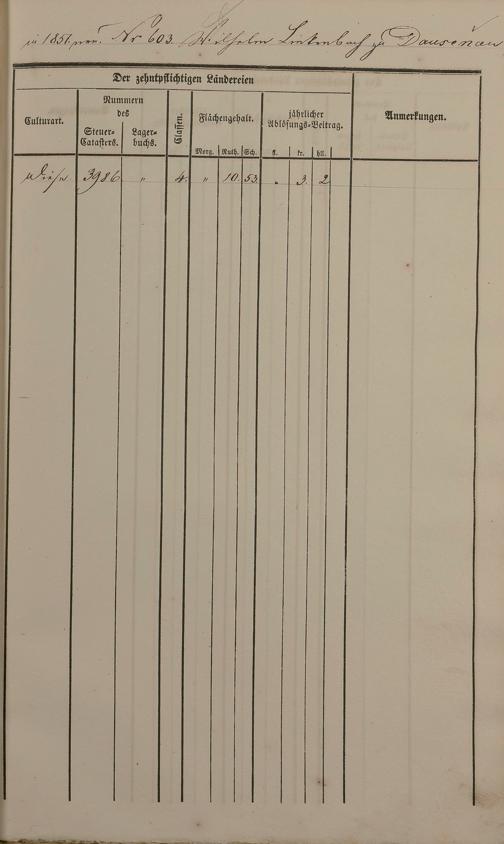 in 1851 neu. Nr 603. Wilhelm Linkenbach zu Dausenau
Der zehntpflichtigen Ländereien
Culturart.
Nummern
des
Steuer-
Catasters.
Lager-
buchs.
Classen.
Flächengehalt.
Morg. Ruth. Sch.
jährlicher
Ablösungs-Beitrag.
fl. kr. hll.
Anmerkungen.
Wiese 3986 " 4. " 10. 53. " 3. 2